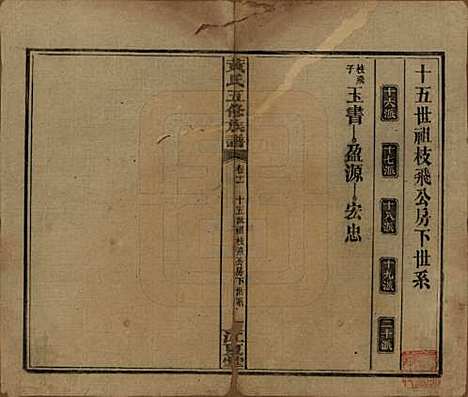 十五世祖枝飛公房下世系
十六派
十七派
十八派
十九派
二十派
枝飛子
玉書
盈源
宏忠
黃氏五修族譜
十五世祖枝飛公房下世系
江夏堂